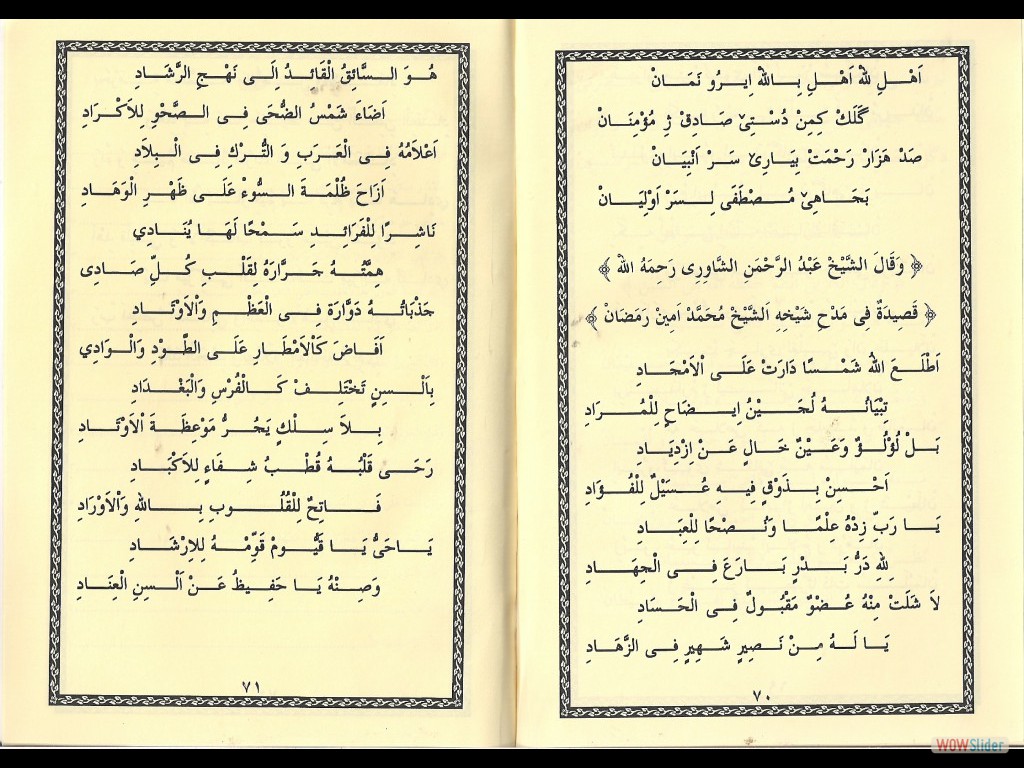 اَهْلِ لله اَهْلِ بِالله اِيرُو نَمَانْ
گَلَكْ كِمِنْ دُسْتِیْ صَادِقْ ژِ مُؤْمِنَانْ
صَدْ هَزَارْ رَحْمَتْ بِيَارِیْ سَرْ اَنْبِيَانْ
بَجَاهِیْ مُصْطَفَى لِسَرْ اَوْلِيَانْ
﴿ وَقَالَ الشَّيْخْ عَبْدُ الرَّحْمَنِ الشَّاوِرِى رَحِمَهُ الله ﴾
﴿ قَصِيدَةٌ فِى مَدْحِ شَيْخِهِ اَلشَّيْخْ مُحَمَّدْ اَمِينْ رَمَضَانْ ﴾
اَطْلَعَ اللهُ شَمْسًا دَارَتْ عَلَى اْلاَمْجَادِ
تِبْيَانُهُ لُجَيْنُ اِيضَاحٍ لِلْمُرَادِ
بَلْ لُؤْلُؤٌ وَعَيْنٌ خَالٍ عَنْ اِزْدِيَادِ
اَحْسِنْ بِذَوْقٍ فِيهِ عُسَيْلٌ لِلْفُؤَادِ
يَا رَبِّ زِدْهُ عِلْمًا وَنُصْحًا لِلْعِبَادِ
لِلهِ دَرُّ بَدْرٍ بَارَعَ فِى الْجِهَادِ
لاَ شَلَتْ مِنْهُ عُضْوٌ مَقْبُولٌ فِى الْحَسَادِ
يَا لَهُ مِنْ نَصِيرٍ شَهِيرٍ فِى الزَّهَادِ
٧٠
هُوَ السَّائِقُ الْقَائِدُ اِلَى نَهْجِ الرَّشَادِ
اَضَاءَ شَمْسُ الضُّحَى فِى الصَّحْوِ لِلاَكْرَادِ
اَعْلاَمُهُ فِى الْعَرَبِ وَ التُّرْكِ فِى الْبِلاَدِ
اَزَاحَ ظُلْمَةَ السُّوءْ عَلَى ظَهْرِ الْوَهَادِ
نَاشِرًا لِلْفَرَائِدِ سَمْحًا لَهَا يُنَادِي
هِمَّتُهُ جَرَّارَةٌ لِقَلْبِ كُلِّ صَادِى
جَذْبَاتُهُ دَوَّارَة فِى الْعَظْمِ وَاْلاَوْتَادِ
اَفَاضَ كَاْلاَمْطَارِ عَلَى الطَّوْدِ وَالْوَادِي
بِاَلْسِنٍ تَخْتَلِفْ كَالْفُرْسِ وَالْبَغْدَادِ
بِلاَ سِلْكٍ يَجُرُّ مَوْعِظَةَ اْلاَوْتَادِ
رَحَى قَلْبُهُ قُطْبُ شِفَاءٍ لِلاَكْبَادِ
فَاتِحٌ لِلْقُلُوبِ بِاللهِ وَاْلاَوْرَادِ
يَاحَىُّ يَا قَيُّومْ قَوِّمْهُ لِلاِرْشَادِ
وَصِنْهُ يَا حَفِيظُ عَنْ اَلْسِنِ الْعِنَادِ
٧١
WOWSlider